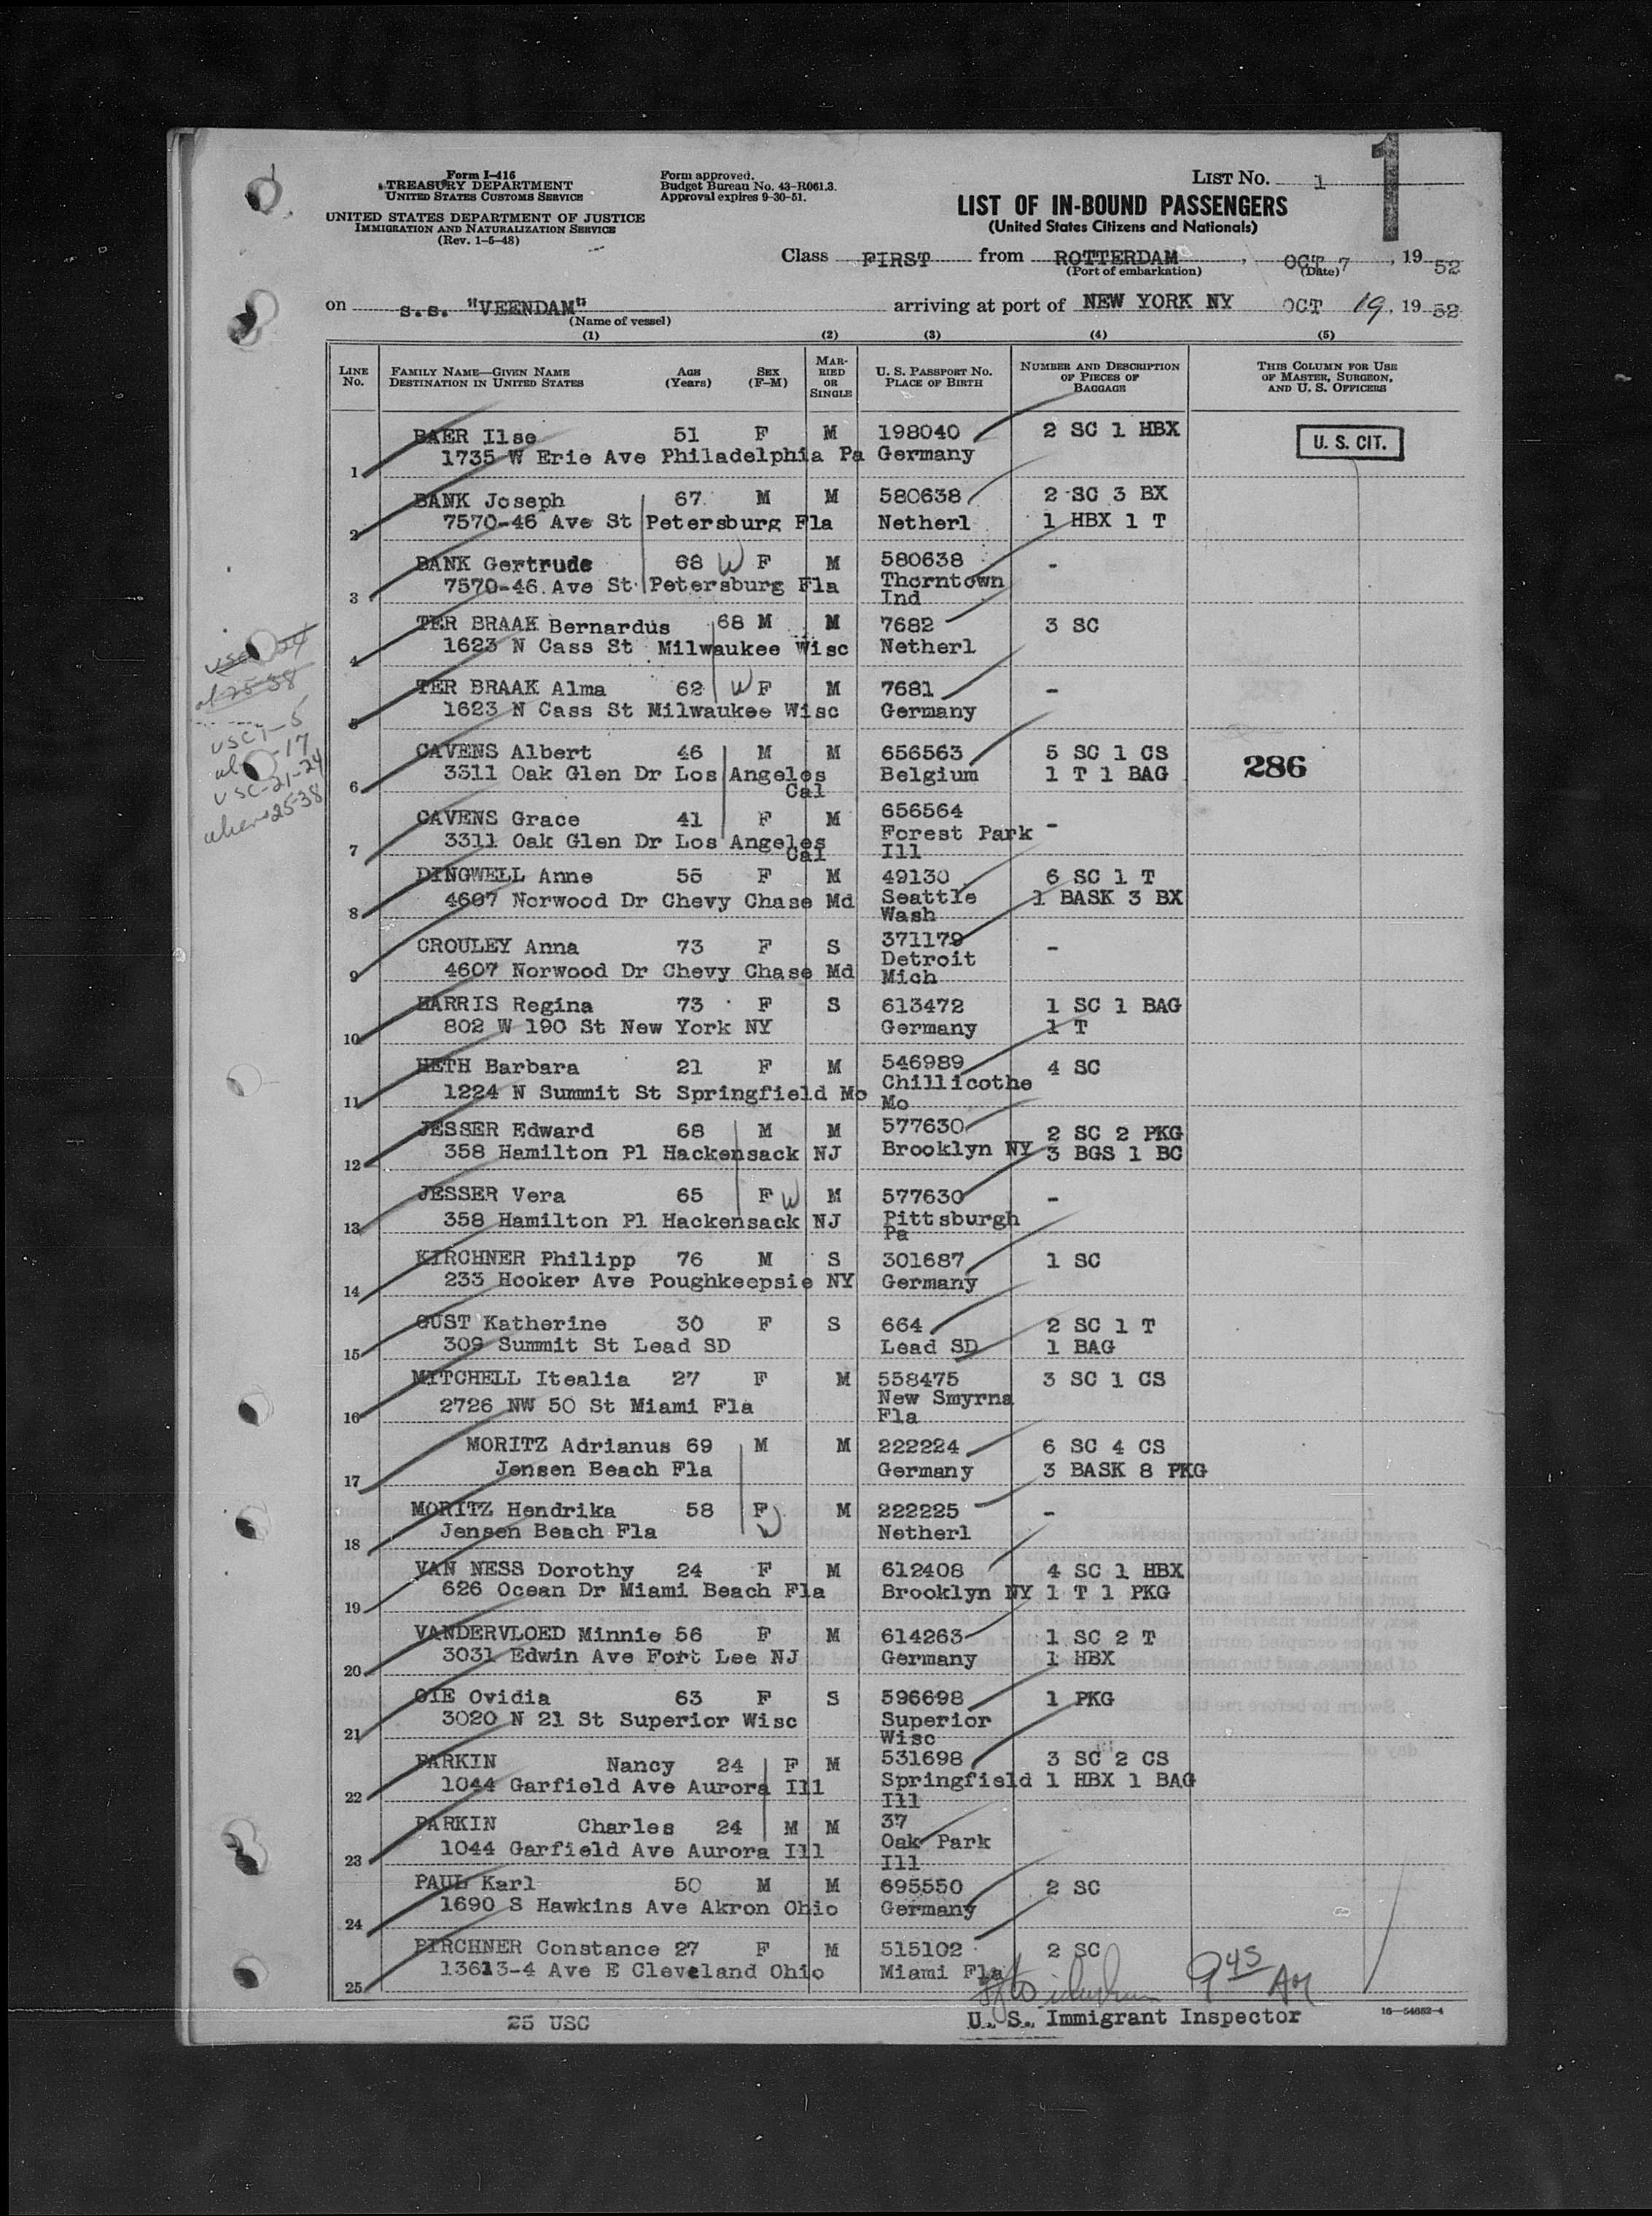 Form I-416
TREASURY DEPARTMENT
UNITED STATES CUSTOMS SERVICE
UNITED STATES DEPARTMENT OF JUSTICE
IMMIGRATION AND NATURALIZATION SERVICE
(Rev. 1-5-48)
Form approved.
Budget Bureau No. 43-R061.3.
Approval expires 9-30-51.
LIST NO. 1
1
LIST OF IN-BOUND PASSENGERS
(United States Citizens and Nationals)
Class FIRST from ROTTERDAM, OCT 7, 19 52
(Port of embarkation) (Date)
on s.s. "VEENDAM" arriving at port of NEW YORK NY OCT 19, 19 52
(Name of vessel)
(1) (2) (3) (4) (5)
LINE No. FAMILY NAME—GIVEN NAME DESTINATION IN UNITED STATES AGE (Years) SEX (F-M) MARRIED OR SINGLE U. S. PASSPORT NO. PLACE OF BIRTH NUMBER AND DESCRIPTION OF PIECES OF BAGGAGE THIS COLUMN FOR USE OF MASTER, SURGEON, AND U. S. OFFICERS
BAER Ilse 51 F M 198040 2 SC 1 HBX U. S. CIT.
1 1735 W Erie Ave Philadelphia Pa Germany
BANK Joseph 67 M M 580638 2 SC 3 BX
2 7570-46 Ave St Petersburg Fla Netherl 1 HBX 1 T
BANK Gertrude 68 W F M 580638 -
3 7570-46 Ave St Petersburg Fla Thorntown
Ind
TER BRAAK Bernardus 68 M M 7682 3 SC
4 1623 N Cass St Milwaukee Wisc Netherl
TER BRAAK Alma 62 W F M 7681 -
5 1623 N Cass St Milwaukee Wisc Germany
CAVENS Albert 46 M M 656563 5 SC 1 CS 286
6 3311 Oak Glen Dr Los Angeles Cal Belgium 1 T 1 BAG
CAVENS Grace 41 F M 656564 -
7 3311 Oak Glen Dr Los Angeles Cal Forest Park
Ill
DINGWELL Anne 55 F M 49130 6 SC 1 T
8 4607 Norwood Dr Chevy Chase Md Seattle 1 BASK 3 BX
Wash
CROULEY Anna 73 F S 371179 -
9 4607 Norwood Dr Chevy Chase Md Detroit
Mich
HARRIS Regina 73 F S 613472 1 SC 1 BAG
10 802 W 190 St New York NY Germany 1 T
HETH Barbara 21 F M 546989 4 SC
11 1224 N Summit St Springfield Mo Chillicothe
Mo
JESSER Edward 68 M M 577630 2 SC 2 PKG
12 358 Hamilton Pl Hackensack NJ Brooklyn NY 3 BGS 1 BC
JESSER Vera 65 F W M 577630 -
13 358 Hamilton Pl Hackensack NJ Pittsburgh
Pa
KIRCHNER Philipp 76 M S 301687 1 SC
14 233 Hooker Ave Poughkeepsie NY Germany
GUST Katherine 30 F S 664 2 SC 1 T
15 309 Summit St Lead SD Lead SD 1 BAG
MITCHELL Itealia 27 F M 558475 3 SC 1 CS
16 2726 NW 50 St Miami Fla New Smyrna
Fla
MORITZ Adrianus 69 M M 222224 6 SC 4 CS
17 Jensen Beach Fla Germany 3 BASK 8 PKG
MORITZ Hendrika 58 F W M 222225 -
18 Jensen Beach Fla Netherl
VAN NESS Dorothy 24 F M 612408 4 SC 1 HBX
19 626 Ocean Dr Miami Beach Fla Brooklyn NY 1 T 1 PKG
VANDERVLOED Minnie 56 F M 614263 1 SC 2 T
20 3031 Edwin Ave Fort Lee NJ Germany 1 HBX
OIE Ovidia 63 F S 596698 1 PKG
21 3020 N 21 St Superior Wisc Superior
Wisc
PARKIN Nancy 24 F M 531698 3 SC 2 CS
22 1044 Garfield Ave Aurora Ill Springfield 1 HBX 1 BAG
Ill
PARKIN Charles 24 M M 37
23 1044 Garfield Ave Aurora Ill Oak Park
Ill
PAUL Karl 50 M M 695550 2 SC
24 1690 S Hawkins Ave Akron Ohio Germany
PIRCHNER Constance 27 F M 515102 2 SC
25 13613-4 Ave E Cleveland Ohio Miami Fla
9 45 AM
25 USC U. S. Immigrant Inspector 16—54652-4
USC 1-5
17
USC-21-24
25-38